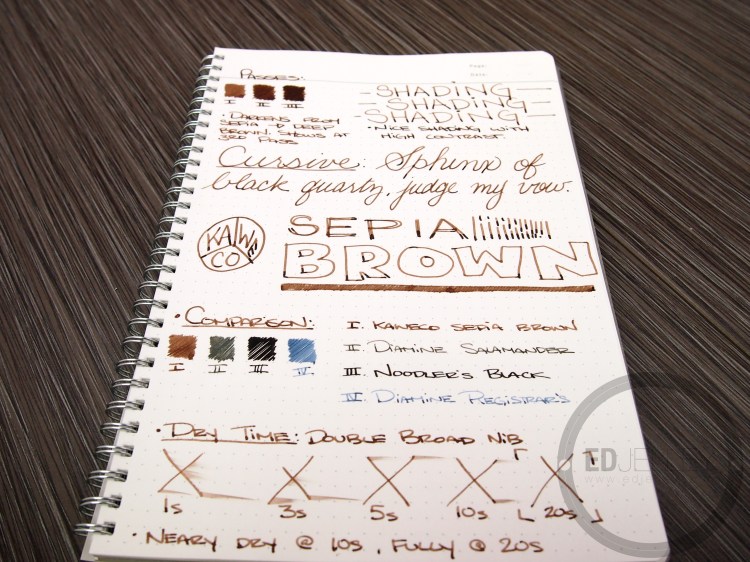 Page:
Date:
Passes:
I II III
• Darkens from
sepia → deep
brown. Shows at
3rd pass
SHADING
SHADING
SHADING
• Nice shading with
high contrast.
Cursive: Sphinx of
black quartz, judge my vow.
KAWE
CO
SEPIA
BROWN
• Comparison:
I II III IV
I. Kaweco Sepia Brown
II. Diamine Salamander
III. Noodler's Black
IV. Diamine Registrar's
• Dry Time: Double Broad Nib
1s 3s 5s 10s 20s
• Neary dry @ 10s, fully @ 20s